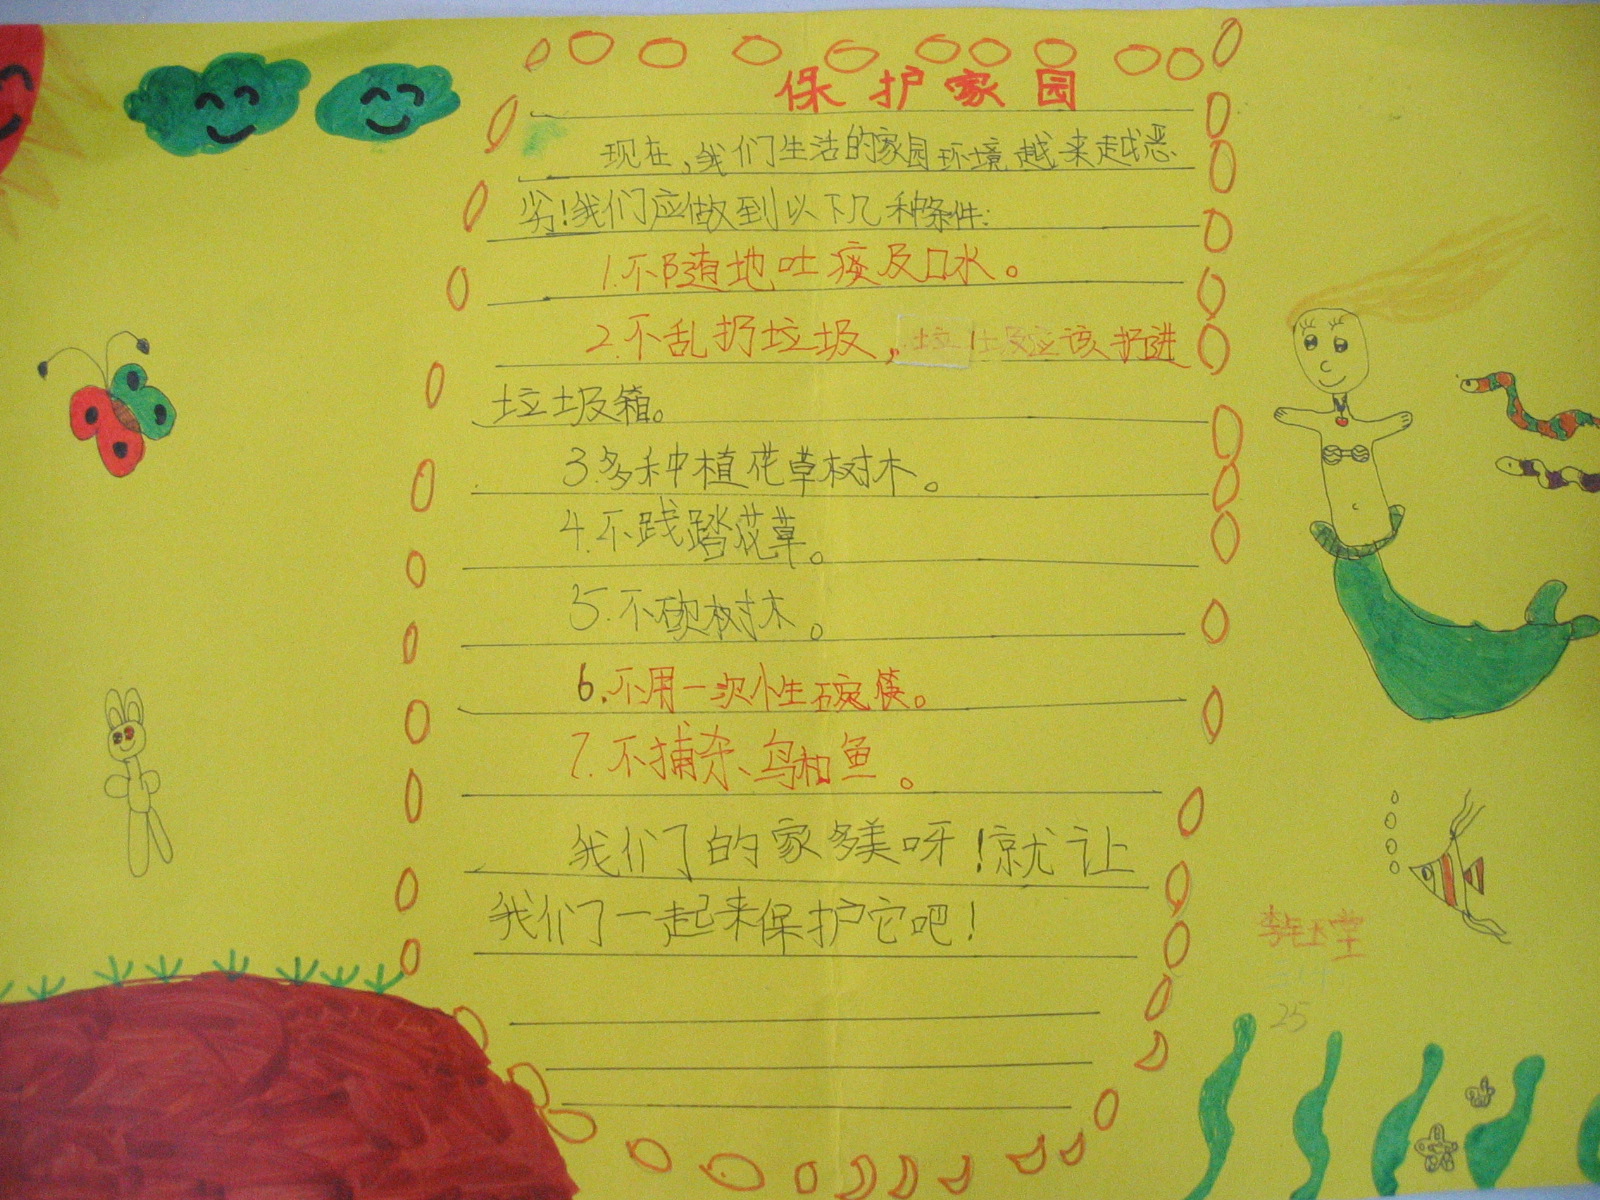 保护家园
现在,我们生活的家园环境越来越恶
劣!我们应做到以下几种条件:
1.不随地吐痰及口水。
2.不乱扔垃圾,垃圾应该扔进
垃圾箱。
3.多种植花草树木。
4.不践踏花草。
5.不砍树木。
6.不用一次性碗筷。
7.不捕杀、鸟和鱼。
我们的家多美呀!就让
我们一起来保护它吧!
25